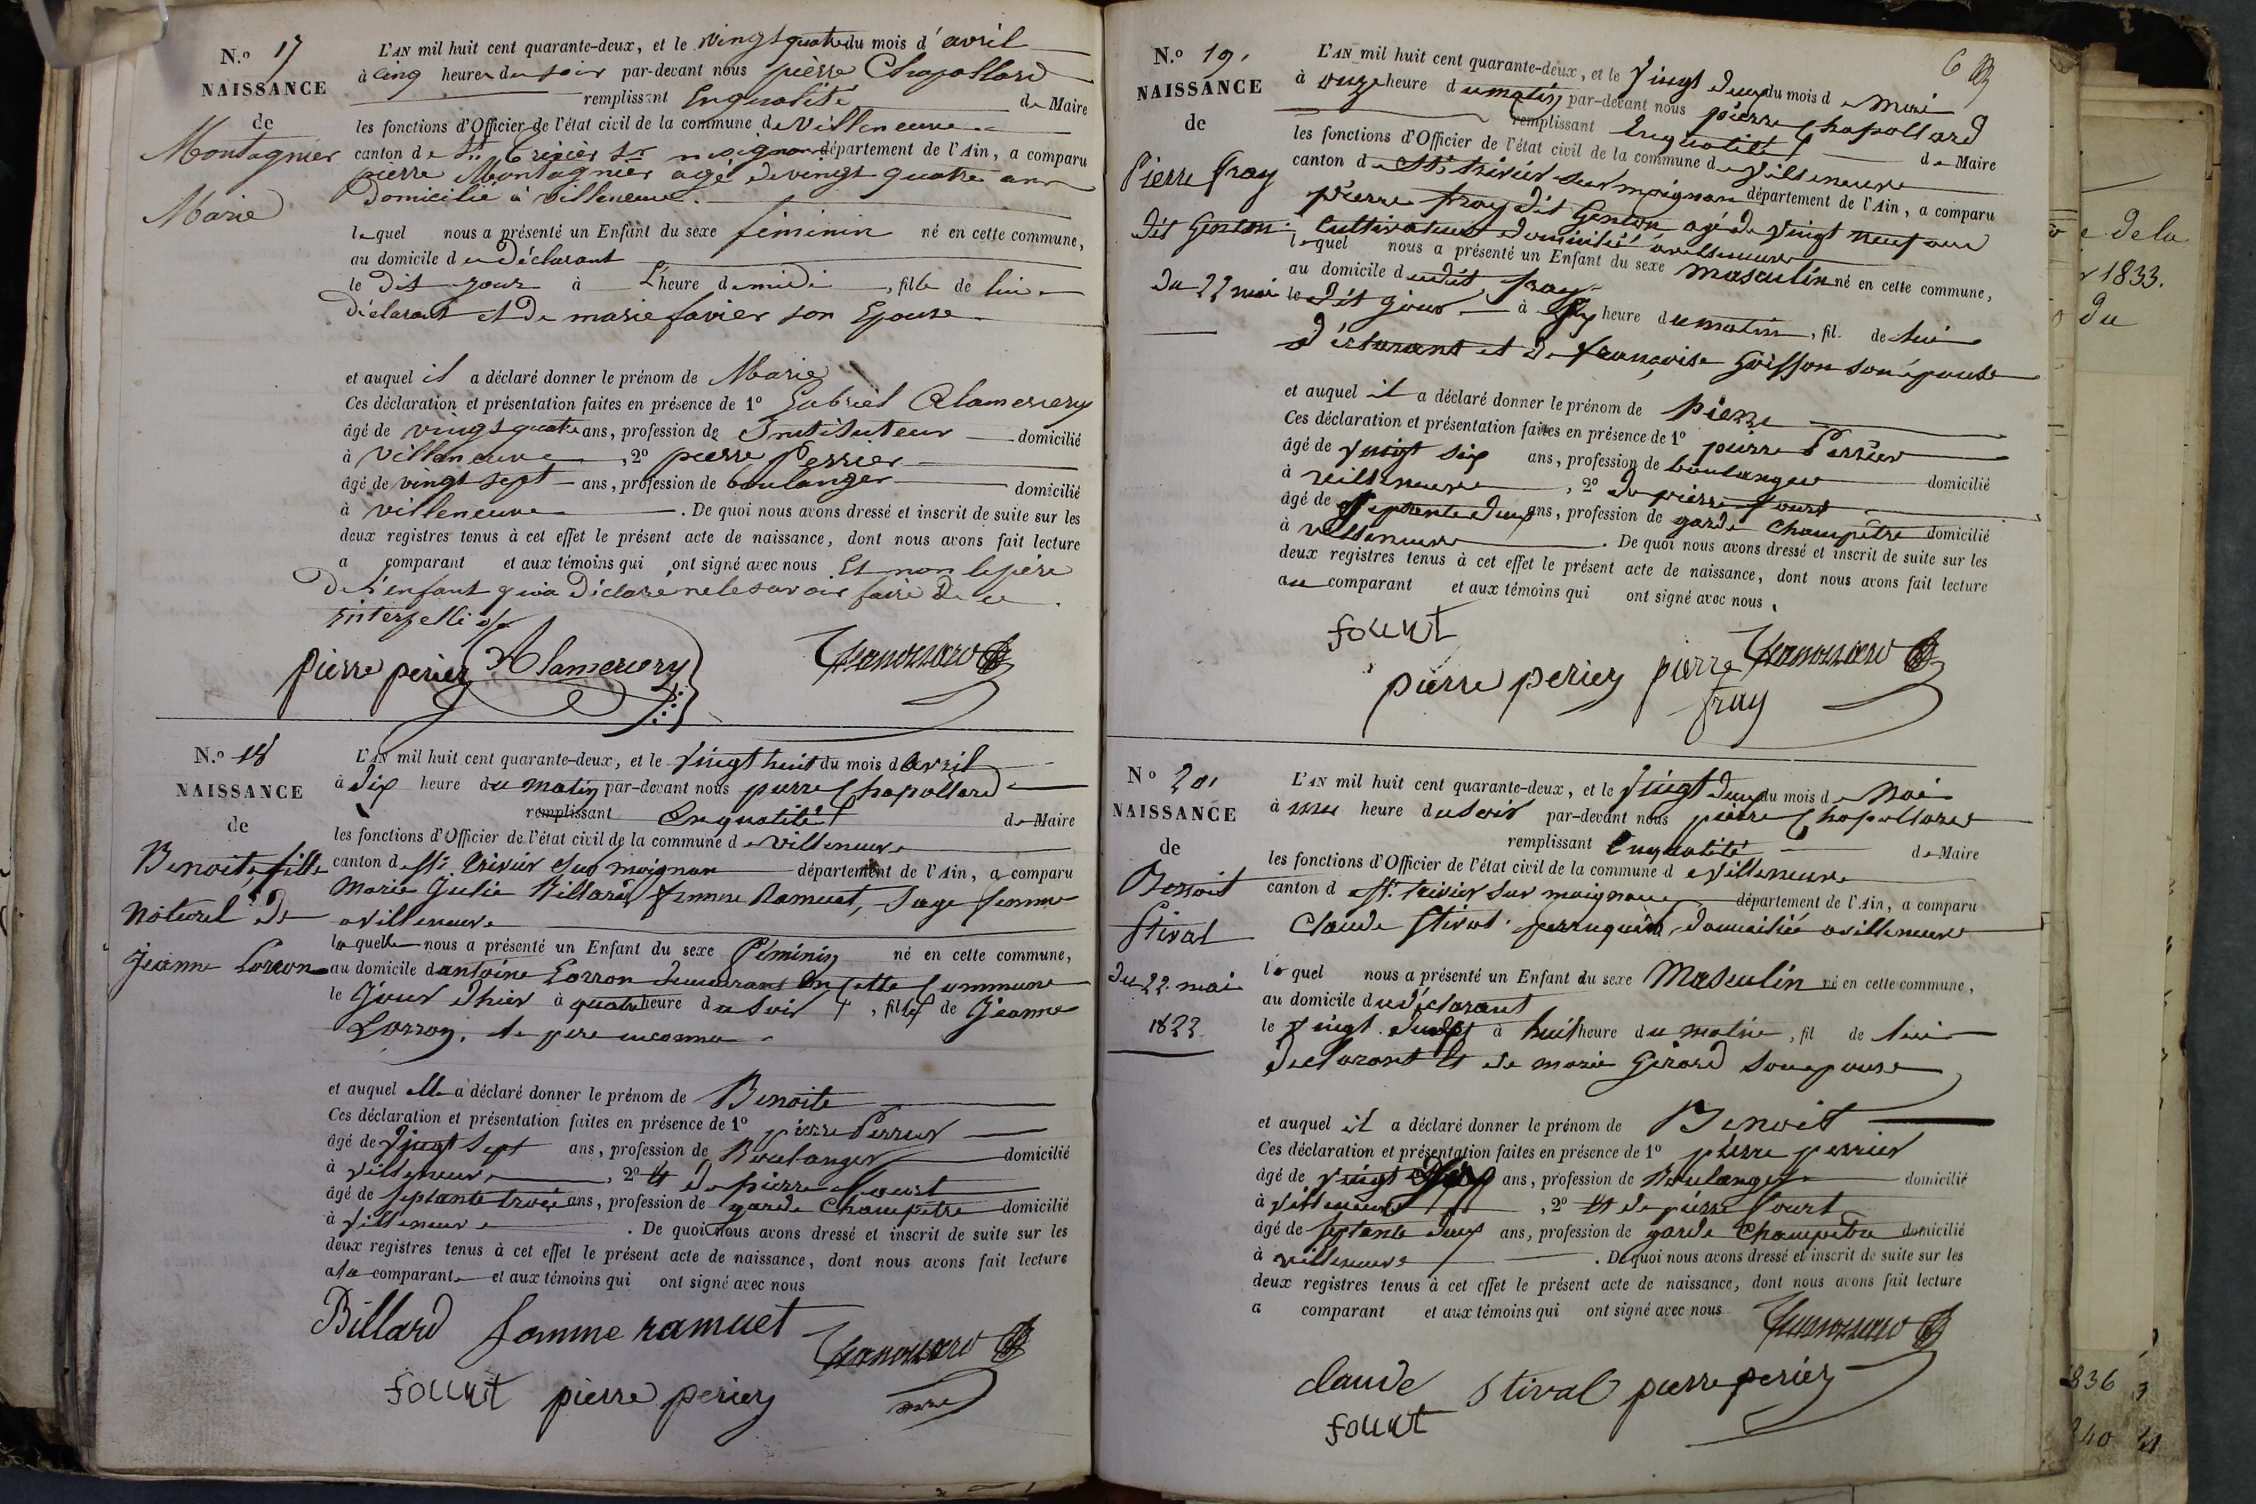 N.o 17
NAISSANCE
de
Montagnier
Marie
L'AN mil huit cent quarante-deux, et le vingt quatre du mois d'avril
à cinq heures du soir par-devant nous pièrre Chapollard
remplissant En qualité de Maire
les fonctions d'Officier de l'état civil de la commune de Villeneuve
canton de St. trivier Sr. moignan département de l'Ain, a comparu
pierre Montagnier agé de vingt quatre ans
Domicilié à Villeneuve.
lequel nous a présenté un Enfant du sexe féminin né en cette commune,
au domicile du Déclarant
le Dit jour à l'heure de midi, fille de lui
déclarant et De marie favier son Epouse
et auquel il a déclaré donner le prénom de Marie
Ces déclaration et présentation faites en présence de 1o Gabriel Alamercery
âgé de vingt quatre ans, profession de Instituteur domicilié
à Villeneuve, 2o pierre Perrier
âgé de vingt sept ans, profession de boulanger domicilié
à villeneuve. De quoi nous avons dressé et inscrit de suite sur les
deux registres tenus à cet effet le présent acte de naissance, dont nous avons fait lecture
a comparant et aux témoins qui ont signé avec nous Et non le père
De l'enfant qui a Déclaré ne le savoir faire De ce
interpellé
pierre perier Alamercery
N.o 18
NAISSANCE
de
Benoite, fille
naturel de
Jeanne Lorron
L'AN mil huit cent quarante-deux, et le vingt huit du mois d'avril
à dix heure du matin par-devant nous pierre Chapollard
remplissant En qualité de Maire
les fonctions d'Officier de l'état civil de la commune de villeneuve
canton de St. trivier sur moignan département de l'Ain, a comparu
Marie Julie Billard femme Ramuet, sage femme
a villeneuve
laquelle nous a présenté un Enfant du sexe féminin né en cette commune,
au domicile d'antoine Lorron demeurant en cette Commune
le jour d'hier à quatre heure du soir, fille de Jeanne
Lorron, de père inconnu
et auquel elle a déclaré donner le prénom de Benoite
Ces déclaration et présentation faites en présence de 1o pierre Perrier
âgé de vingt sept ans, profession de Boulanger domicilié
à villeneuve, 2o et de pierre fourt
âgé de septante trois ans, profession de garde Champetre domicilié
à villeneuve. De quoi nous avons dressé et inscrit de suite sur les
deux registres tenus à cet effet le présent acte de naissance, dont nous avons fait lecture
a la comparante et aux témoins qui ont signé avec nous
Billard famme ramuet
fourt pierre perier
6
N.o 19.
NAISSANCE
de
Pierre fray
dit Genton
du 22 mai
L'AN mil huit cent quarante-deux, et le vingt deux du mois de mai
à onze heure du matin par-devant nous pierre Chapollard
remplissant En qualité de Maire
les fonctions d'Officier de l'état civil de la commune de villeneuve
canton de St. trivier sur moignan département de l'Ain, a comparu
pierre fray dit Genton agé de vingt neuf ans
Cultivateur domicilié a villeneuve
lequel nous a présenté un Enfant du sexe masculin né en cette commune,
au domicile dudit fray
le dit jour à six heure du matin, fil. de lui
déclarant et de françoise Goiffon son épouse
et auquel il a déclaré donner le prénom de pierre
Ces déclaration et présentation faites en présence de 1o pierre Perrier
âgé de vingt six ans, profession de boulanger domicilié
à villeneuve, 2o de pierre fourt
âgé de septante deux ans, profession de garde Champêtre domicilié
à villeneuve. De quoi nous avons dressé et inscrit de suite sur les
deux registres tenus à cet effet le présent acte de naissance, dont nous avons fait lecture
au comparant et aux témoins qui ont signé avec nous.
fourt
pierre perier pierre
fray
No 20.
NAISSANCE
de
Benoit
Stival
du 22 mai
L'AN mil huit cent quarante-deux, et le vingt deux du mois de Mai
à une heure du soir par-devant nous pierre Chapollard
remplissant En qualité de Maire
les fonctions d'Officier de l'état civil de la commune de villeneuve
canton de St. trivier sur moignan département de l'Ain, a comparu
Claude Stival perruquier, domicilié a villeneuve
lequel nous a présenté un Enfant du sexe Masculin né en cette commune,
au domicile du déclarant
le vingt deux à huit heure du matin, fil de lui
déclarant et de marie Girard son epouse
et auquel il a déclaré donner le prénom de Benoit
Ces déclaration et présentation faites en présence de 1o pierre perrier
âgé de vingt ans, profession de Boulanger domicilié
à villeneuve, 2o et de pierre fourt
âgé de septante deux ans, profession de garde Champetre domicilié
à villeneuve. De quoi nous avons dressé et inscrit de suite sur les
deux registres tenus à cet effet le présent acte de naissance, dont nous avons fait lecture
a comparant et aux témoins qui ont signé avec nous
claude Stival pierre perier
fourt
de la
1833.
du
836 3
840